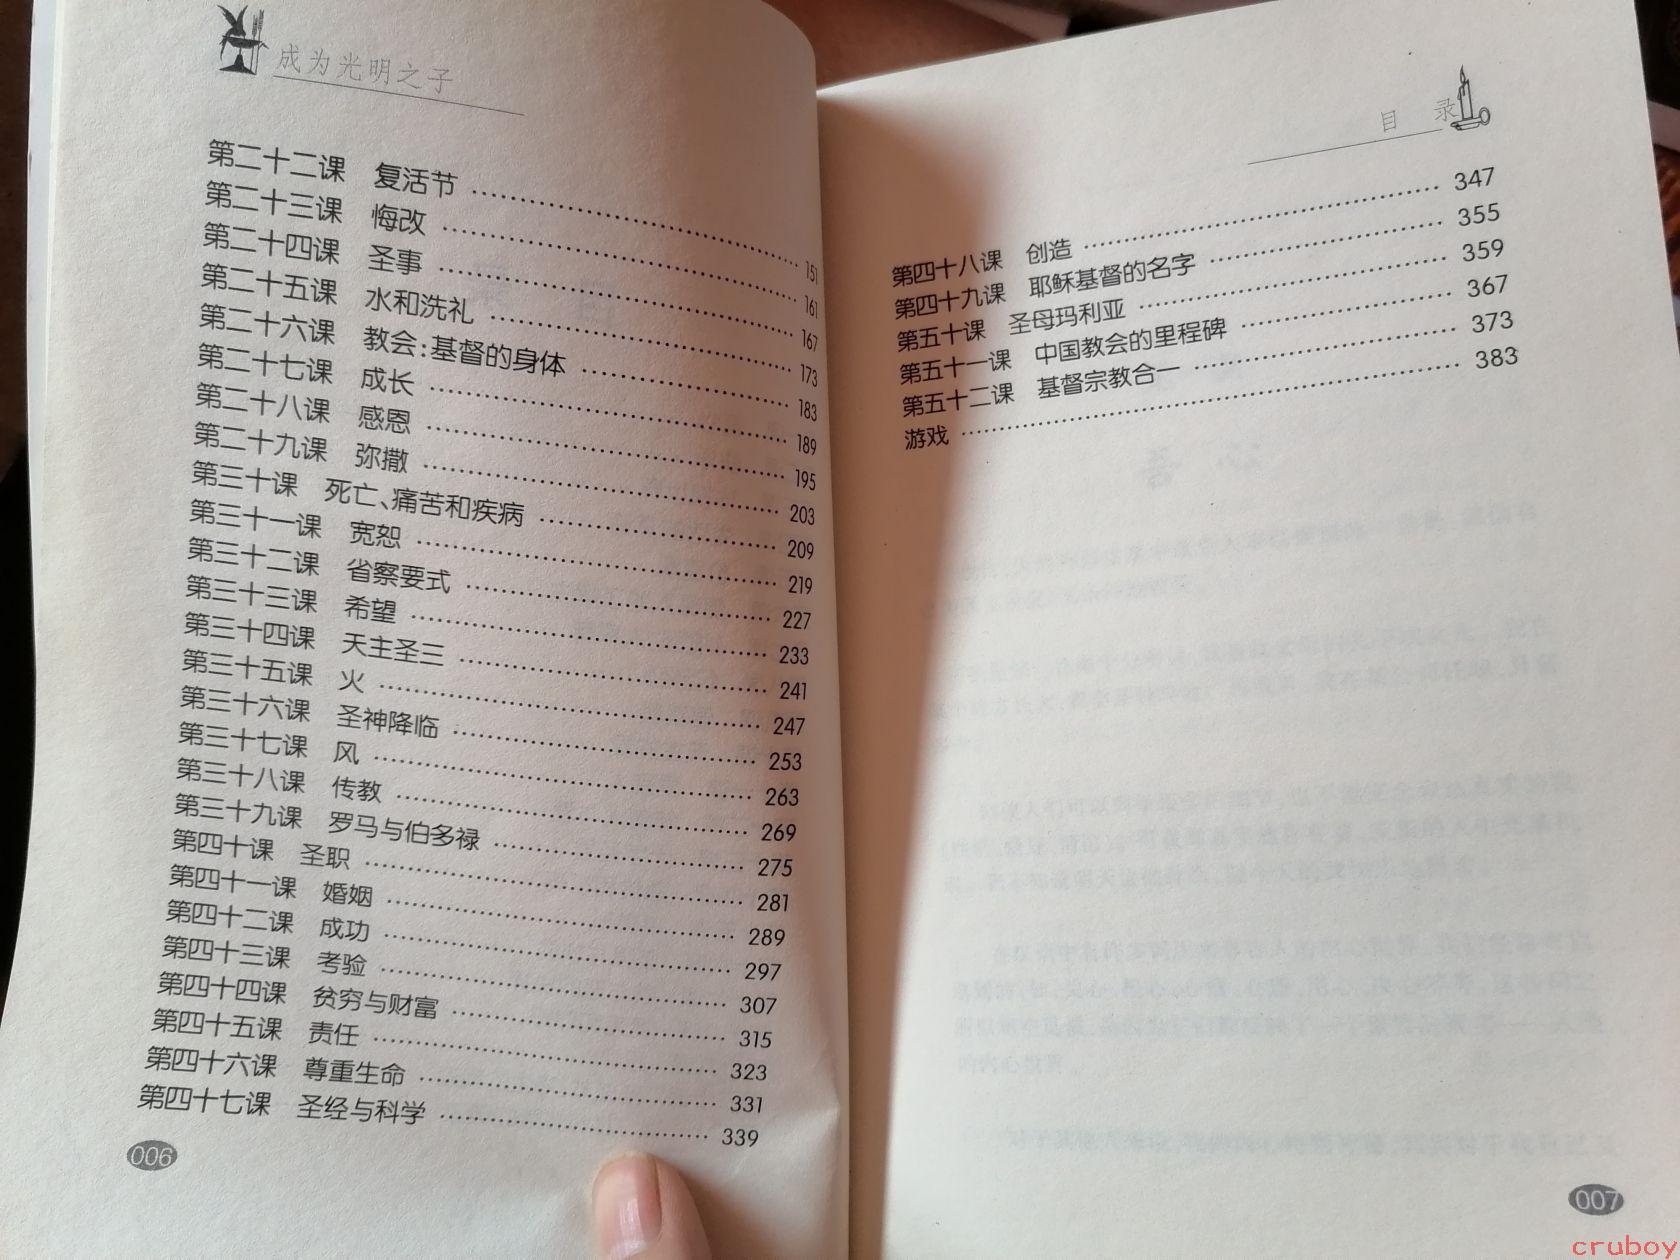 成为光明之子
第二十二课 复活节 …… 151
第二十三课 悔改 …… 161
第二十四课 圣事 …… 167
第二十五课 水和洗礼 …… 173
第二十六课 教会:基督的身体 …… 183
第二十七课 成长 …… 189
第二十八课 感恩 …… 195
第二十九课 弥撒 …… 203
第三十课 死亡、痛苦和疾病 …… 209
第三十一课 宽恕 …… 219
第三十二课 省察要式 …… 227
第三十三课 希望 …… 233
第三十四课 天主圣三 …… 241
第三十五课 火 …… 247
第三十六课 圣神降临 …… 253
第三十七课 风 …… 263
第三十八课 传教 …… 269
第三十九课 罗马与伯多禄 …… 275
第四十课 圣职 …… 281
第四十一课 婚姻 …… 289
第四十二课 成功 …… 297
第四十三课 考验 …… 307
第四十四课 贫穷与财富 …… 315
第四十五课 责任 …… 323
第四十六课 尊重生命 …… 331
第四十七课 圣经与科学 …… 339
006
目 录
第四十八课 创造 …… 347
第四十九课 耶稣基督的名字 …… 355
第五十课 圣母玛利亚 …… 359
第五十一课 中国教会的里程碑 …… 367
第五十二课 基督宗教合一 …… 373
游戏 …… 383
007
cruboy